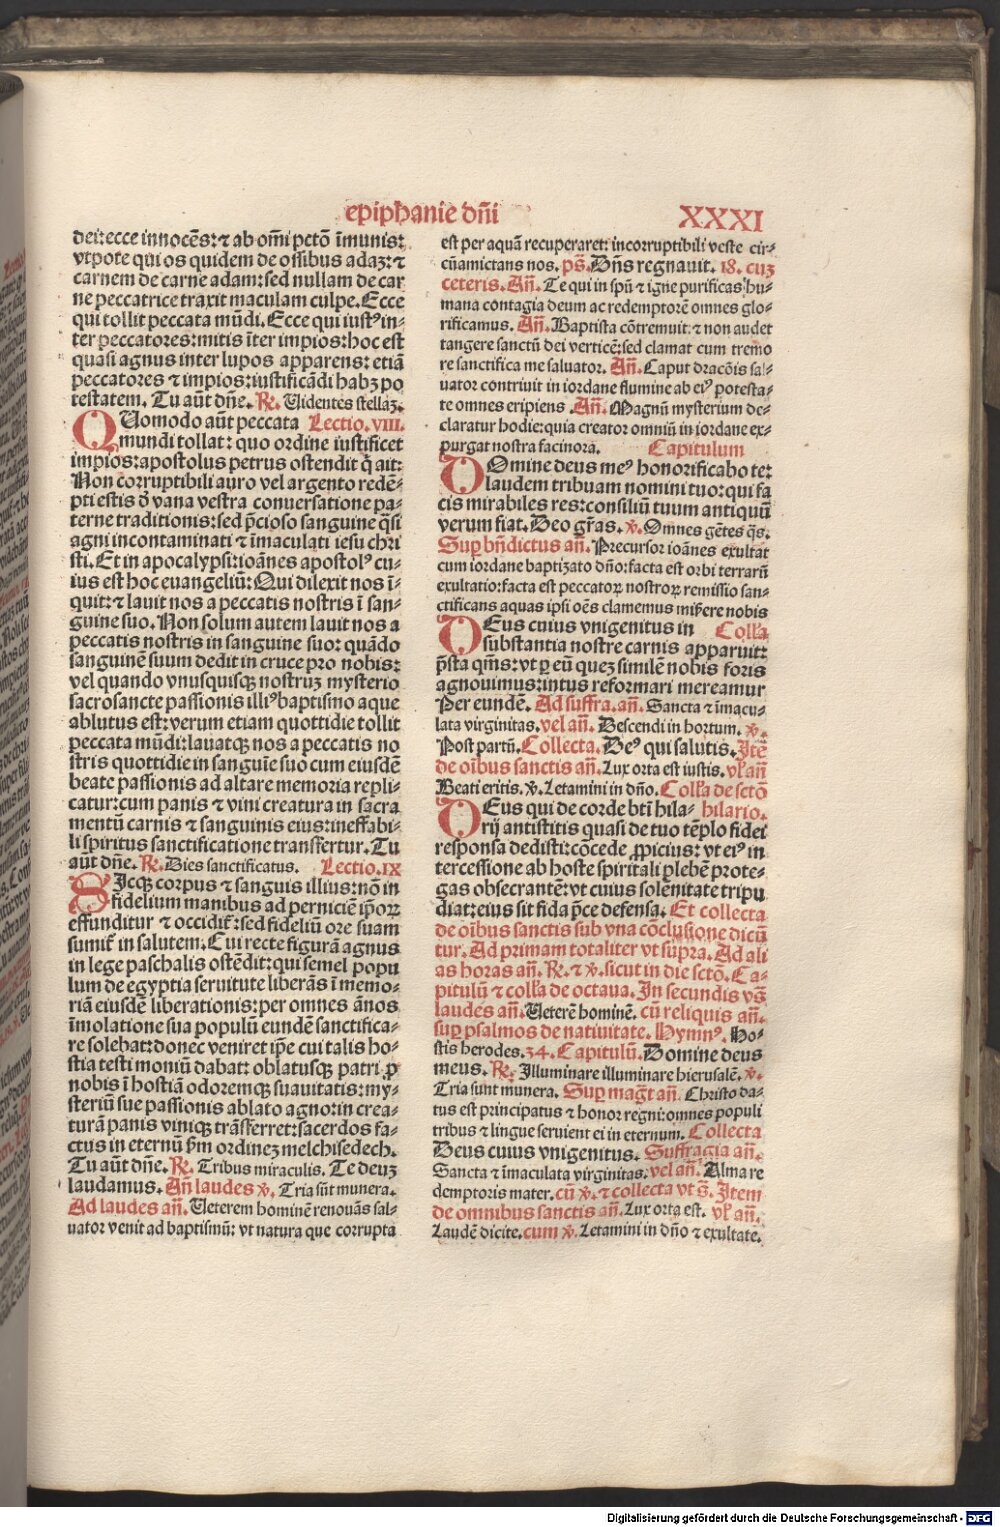 epiphanie dñi
XXXI
dei: ecce innocẽs: ⁊ ab om̃i pctõ ĩmunis:
vtpote qui os quidem de ossibus adaȝ: ⁊
carnem de carne adam: sed nullam de car
ne peccatrice traxit maculam culpe. Ecce
qui tollit peccata mũdi. Ecce qui iustꝰ in-
ter peccatores: mitis ĩter impios: hoc est
quasi agnus inter lupos apparens: etiã
peccatores ⁊ impios: iustificãdi habȝ po
testatem. Tu aũt dñe. ℟. Uidentes stellaȝ.
QUomodo aũt peccata Lectio. VIII.
mundi tollat: quo ordine iustificet
impios: apostolus petrus ostendit q̃ ait:
Non corruptibili auro vel argento redẽ-
pti estis d̃ vana vestra conuersatione pa-
terne traditionis: sed p̃cioso sanguine q̃si
agni incontaminati ⁊ ĩmaculati iesu chri
sti. Et in apocalypsi: ioãnes apostolꝰ cu-
ius est hoc euangeliũ: Qui dilexit nos ĩ-
quit: ⁊ lauit nos a peccatis nostris ĩ san-
guine suo. Non solum autem lauit nos a
peccatis nostris in sanguine suo: quãdo
sanguinẽ suum dedit in cruce pro nobis:
vel quando vnusquisqꝫ nostruȝ mysterio
sacrosancte passionis illiꝰ baptismo aque
ablutus est: verum etiam quottidie tollit
peccata mũdi: lauatqꝫ nos a peccatis no
stris quottidie in sanguĩe suo cum eiusdẽ
beate passionis ad altare memoria repli-
catur: cum panis ⁊ vini creatura in sacra
mentũ carnis ⁊ sanguinis eius: ineffabi-
li spiritus sanctificatione transfertur. Tu
aũt dñe. ℟. Dies sanctificatus. Lectio. IX
SIcqꝫ corpus ⁊ sanguis illius: nõ in
fidelium manibus ad perniciẽ ip̃oꝝ
effunditur ⁊ occidit̃: sed fideliũ ore suam
sumit̃ in salutem. Cui recte figurã agnus
in lege paschalis ostẽdit: qui semel popu
lum de egyptia seruitute liberãs ĩ memo-
riã eiusdẽ liberationis: per omnes ãnos
ĩmolatione sua populũ eundẽ sanctifica-
re solebat: donec veniret ip̃e cui talis ho-
stia testimoniũ dabat: oblatusqꝫ patri ꝓ
nobis ĩ hostiã odoremqꝫ suauitatis: my-
steriũ sue passionis ablato agno: in crea-
turã panis viniqꝫ trãsferret: sacerdos fa-
ctus in eternũ ẜm ordineȝ melchisedech.
Tu aũt dñe. ℟. Tribus miraculis. Te deuȝ
laudamus. Añ laudes ℣. Tria sũt munera.
Ad laudes añ. Ueterem hominẽ renouãs sal-
uator venit ad baptismũ: vt natura que corrupta
est per aquã recuperaret: incorruptibili veste cir-
cũamictans nos. ps̃. Dñs regnauit. 18. cuȝ
ceteris. Añ. Te qui in spũ ⁊ igne purificas hu-
mana contagia deum ac redemptorẽ omnes glo-
rificamus. Añ. Baptista cõtremuit: ⁊ non audet
tangere sanctũ dei verticẽ: sed clamat cum tremo
re sanctifica me saluator. Añ. Caput dracõis sal-
uator contriuit in iordane flumine ab eiꝰ potesta-
te omnes eripiens. Añ. Magnũ mysterium de-
claratur hodie: quia creator omniũ in iordane ex-
purgat nostra facinora. Capitulum
DOmine deus meꝰ honorificabo te:
laudem tribuam nomini tuo: qui fa
cis mirabiles res: consiliũ tuum antiquũ
verum fiat. Deo gr̃as. ℣. Omnes gẽtes q̃s.
Suꝑ bñdictus añ. Precursor ioãnes exultat
cum iordane baptizato dño: facta est orbi terrarũ
exultatio: facta est peccatoꝝ nostroꝝ remissio san-
ctificans aquas ipsi oẽs clamemus mis̃ere nobis
DEus cuius vnigenitus in Coll̃a
substantia nostre carnis apparuit:
p̃sta qm̃s: vt ꝑ eũ queȝ similẽ nobis foris
agnouimus: intus reformari mereamur
Per eundẽ. Ad suffra. añ. Sancta ⁊ ĩmacu-
lata virginitas. vel añ. Descendi in hortum. ℣.
Post partũ. Collecta. Deꝰ qui salutis. Itẽ
de oĩbus sanctis añ. Lux orta est iustis. vl̃ añ
Beati eritis. ℣. Letamini in dño. Coll̃a de sctõ
DEus qui de corde btĩ hila- hilario.
rij antistitis quasi de tuo tẽplo fidei
responsa dedisti: cõcede ꝓpicius: vt eiꝰ in
tercessione ab hoste spiritali plebẽ prote-
gas obsecrantẽ: vt cuius solẽnitate tripu
diat: eius sit fida p̃ce defensa. Et collecta
de oĩbus sanctis sub vna cõclusione dicũ
tur. Ad primam totaliter vt supra. Ad ali
as horas añ. ℟. ⁊ ℣. sicut in die sctõ. Ca-
pitulũ ⁊ coll̃a de octaua. In secundis vs̃
laudes añ. Ueterẽ hominẽ. cũ reliquis añ.
suꝑ psalmos de natiuitate. Hymnꝰ. Ho-
stis herodes. 34. Capitulũ. Domine deus
meus. ℟. Illuminare illuminare hierusalẽ. ℣.
Tria sunt munera. Suꝑ mag̃t añ. Christo da-
tus est principatus ⁊ honor regni: omnes populi
tribus ⁊ lingue seruient ei in eternum. Collecta
Deus cuius vnigenitus. Suffragia añ.
Sancta ⁊ ĩmaculata virginitas. vel añ. Alma re
demptoris mater. cũ ℣. ⁊ collecta vt s̃. Item
de omnibus sanctis añ. Lux orta est. vl̃ añ.
Laudẽ dicite. cum ℣. Letamini in dño ⁊ exultate.
Digitalisierung gefördert durch die Deutsche Forschungsgemeinschaft - DFG